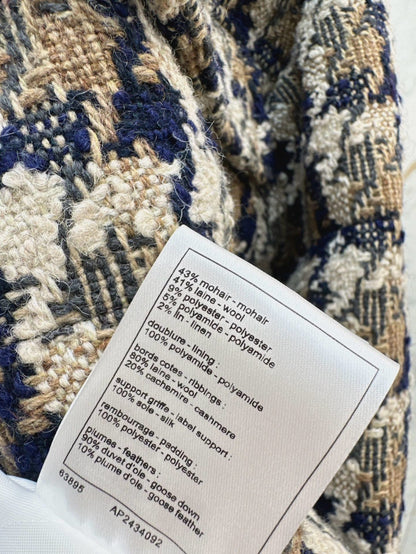 43% mohair - mohair
41% laine - wool
9% polyester - polyester
5% polyamide - polyamide
2% lin - linen
doublure - lining :
100% polyamide - polyamide
bords cotes - ribbings :
80% laine - wool
20% cachemire - cashmere
support griffe - label support :
100% soie - silk
rembourrage - padding :
100% polyester - polyester
plumes - feathers :
90% duvet d'oie - goose down
10% plume d'oie - goose feather
63695
AP2434092